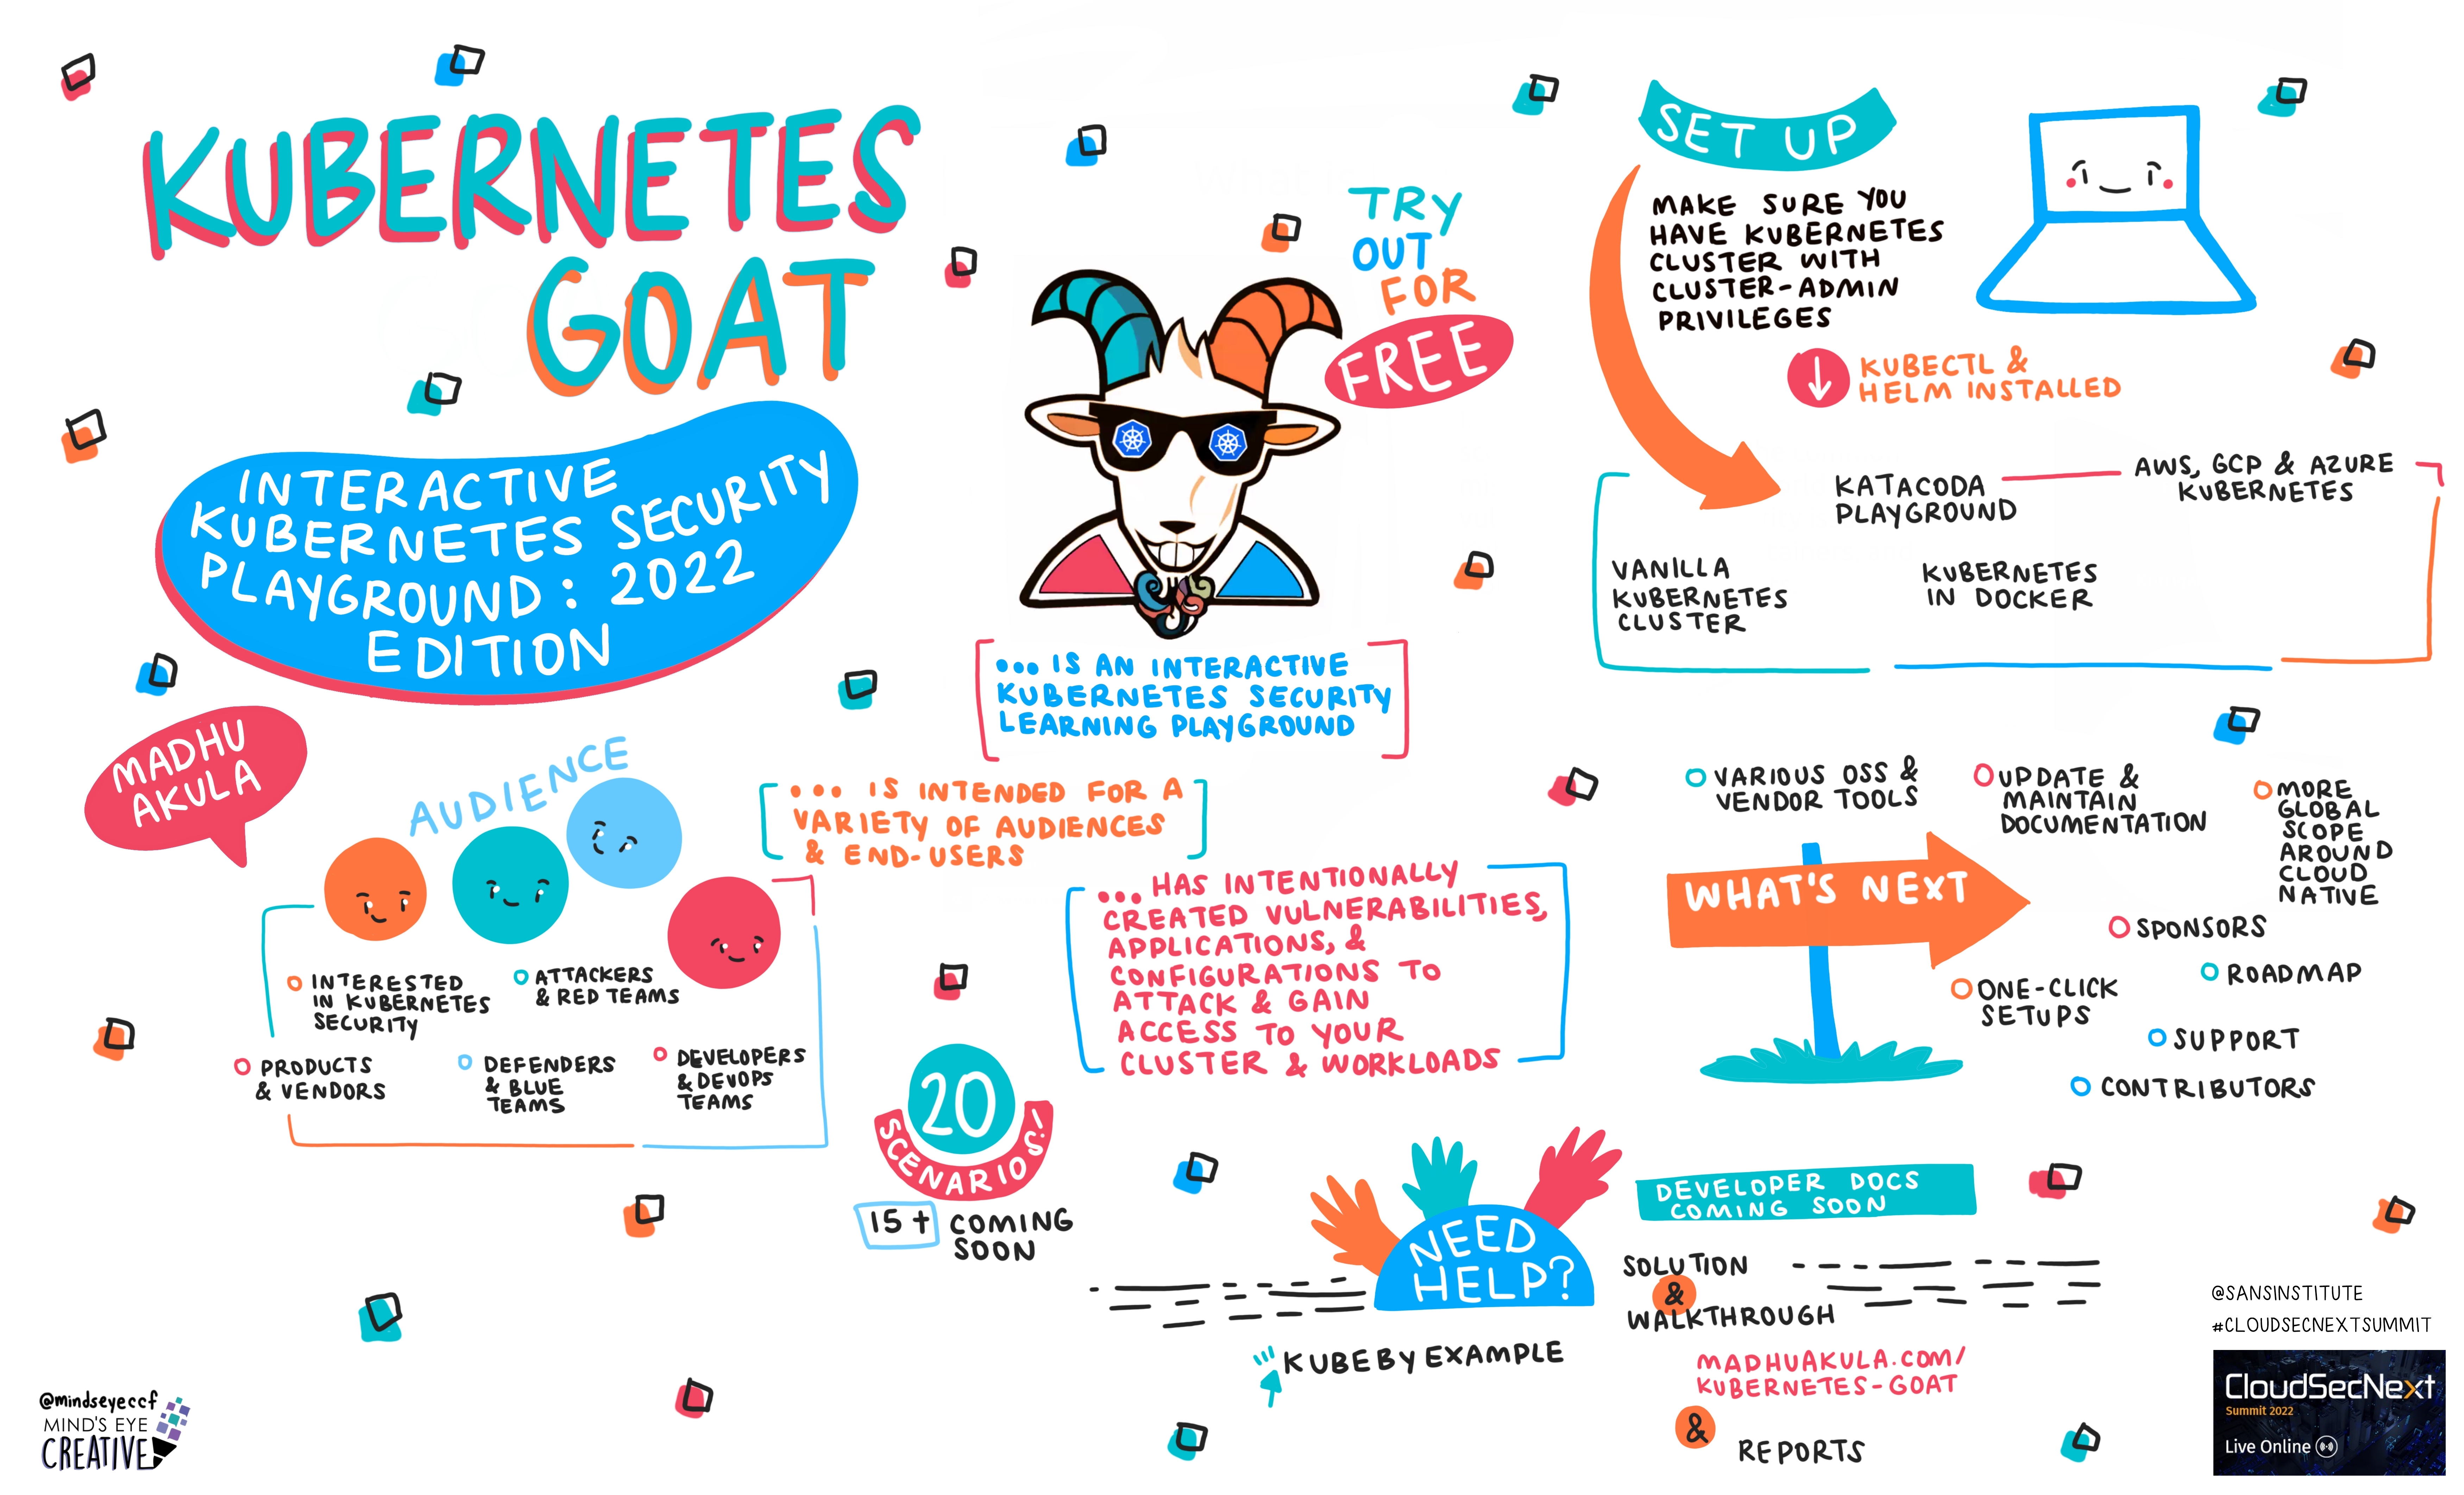 KUBERNETES
GOAT
INTERACTIVE
KUBERNETES SECURITY
PLAYGROUND: 2022
EDITION
MADHU
AKULA
AUDIENCE
INTERESTED
IN KUBERNETES
SECURITY
ATTACKERS
& RED TEAMS
PRODUCTS
& VENDORS
DEFENDERS
& BLUE
TEAMS
DEVELOPERS
& DEVOPS
TEAMS
TRY
OUT
FOR
FREE
... IS AN INTERACTIVE
KUBERNETES SECURITY
LEARNING PLAYGROUND
... IS INTENDED FOR A
VARIETY OF AUDIENCES
& END-USERS
... HAS INTENTIONALLY
CREATED VULNERABILITIES,
APPLICATIONS, &
CONFIGURATIONS TO
ATTACK & GAIN
ACCESS TO YOUR
CLUSTER & WORKLOADS
20
SCENARIOS!
15+ COMING
SOON
SET UP
MAKE SURE YOU
HAVE KUBERNETES
CLUSTER WITH
CLUSTER-ADMIN
PRIVILEGES
KUBECTL &
HELM INSTALLED
KATACODA
PLAYGROUND
AWS, GCP & AZURE
KUBERNETES
VANILLA
KUBERNETES
CLUSTER
KUBERNETES
IN DOCKER
VARIOUS OSS &
VENDOR TOOLS
UPDATE &
MAINTAIN
DOCUMENTATION
MORE
GLOBAL
SCOPE
AROUND
CLOUD
NATIVE
WHAT'S NEXT
SPONSORS
ROADMAP
ONE-CLICK
SETUPS
SUPPORT
CONTRIBUTORS
NEED
HELP?
DEVELOPER DOCS
COMING SOON
SOLUTION
&
WALKTHROUGH
KUBE BY EXAMPLE
MADHUAKULA.COM/
KUBERNETES-GOAT
&
REPORTS
@SANSINSTITUTE
#CLOUDSECNEXTSUMMIT
CloudSecNext
Summit 2022
Live Online
@mindseyeccf
MIND'S EYE
CREATIVE